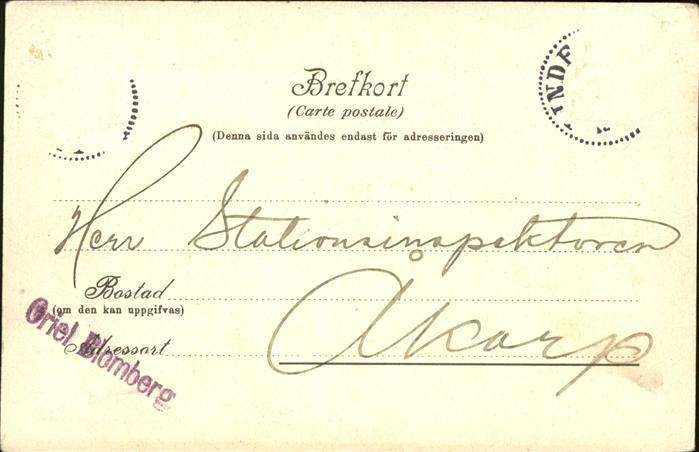 Brefkort
(Carte postale)
(Denna sida användes endast för adresseringen)
Herr Stationsinspektoren
Bostad
(om den kan uppgifvas)
Åkarp
Adressort
Oriel Blomberg